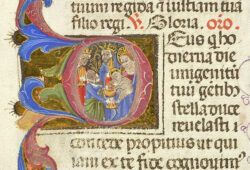 tuum regi da ⁊ iustitiam tuā
filio regi. ℣. Gloria. oro.
Deus q̇ ho
dierna die
unigenitū
tuū gētib⁊
stella duce
revelasti
concede propitius ut qui
iam ex te fide cognovimꝰ